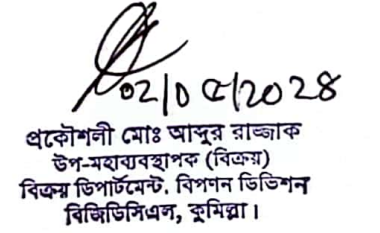 ০২/০৫/২০২৪
প্রকৌশলী মোঃ আব্দুর রাজ্জাক
উপ-মহাব্যবস্থাপক (বিক্রয়)
বিক্রয় ডিপার্টমেন্ট, বিপণন ডিভিশন
বিজিডিসিএল, কুমিল্লা।